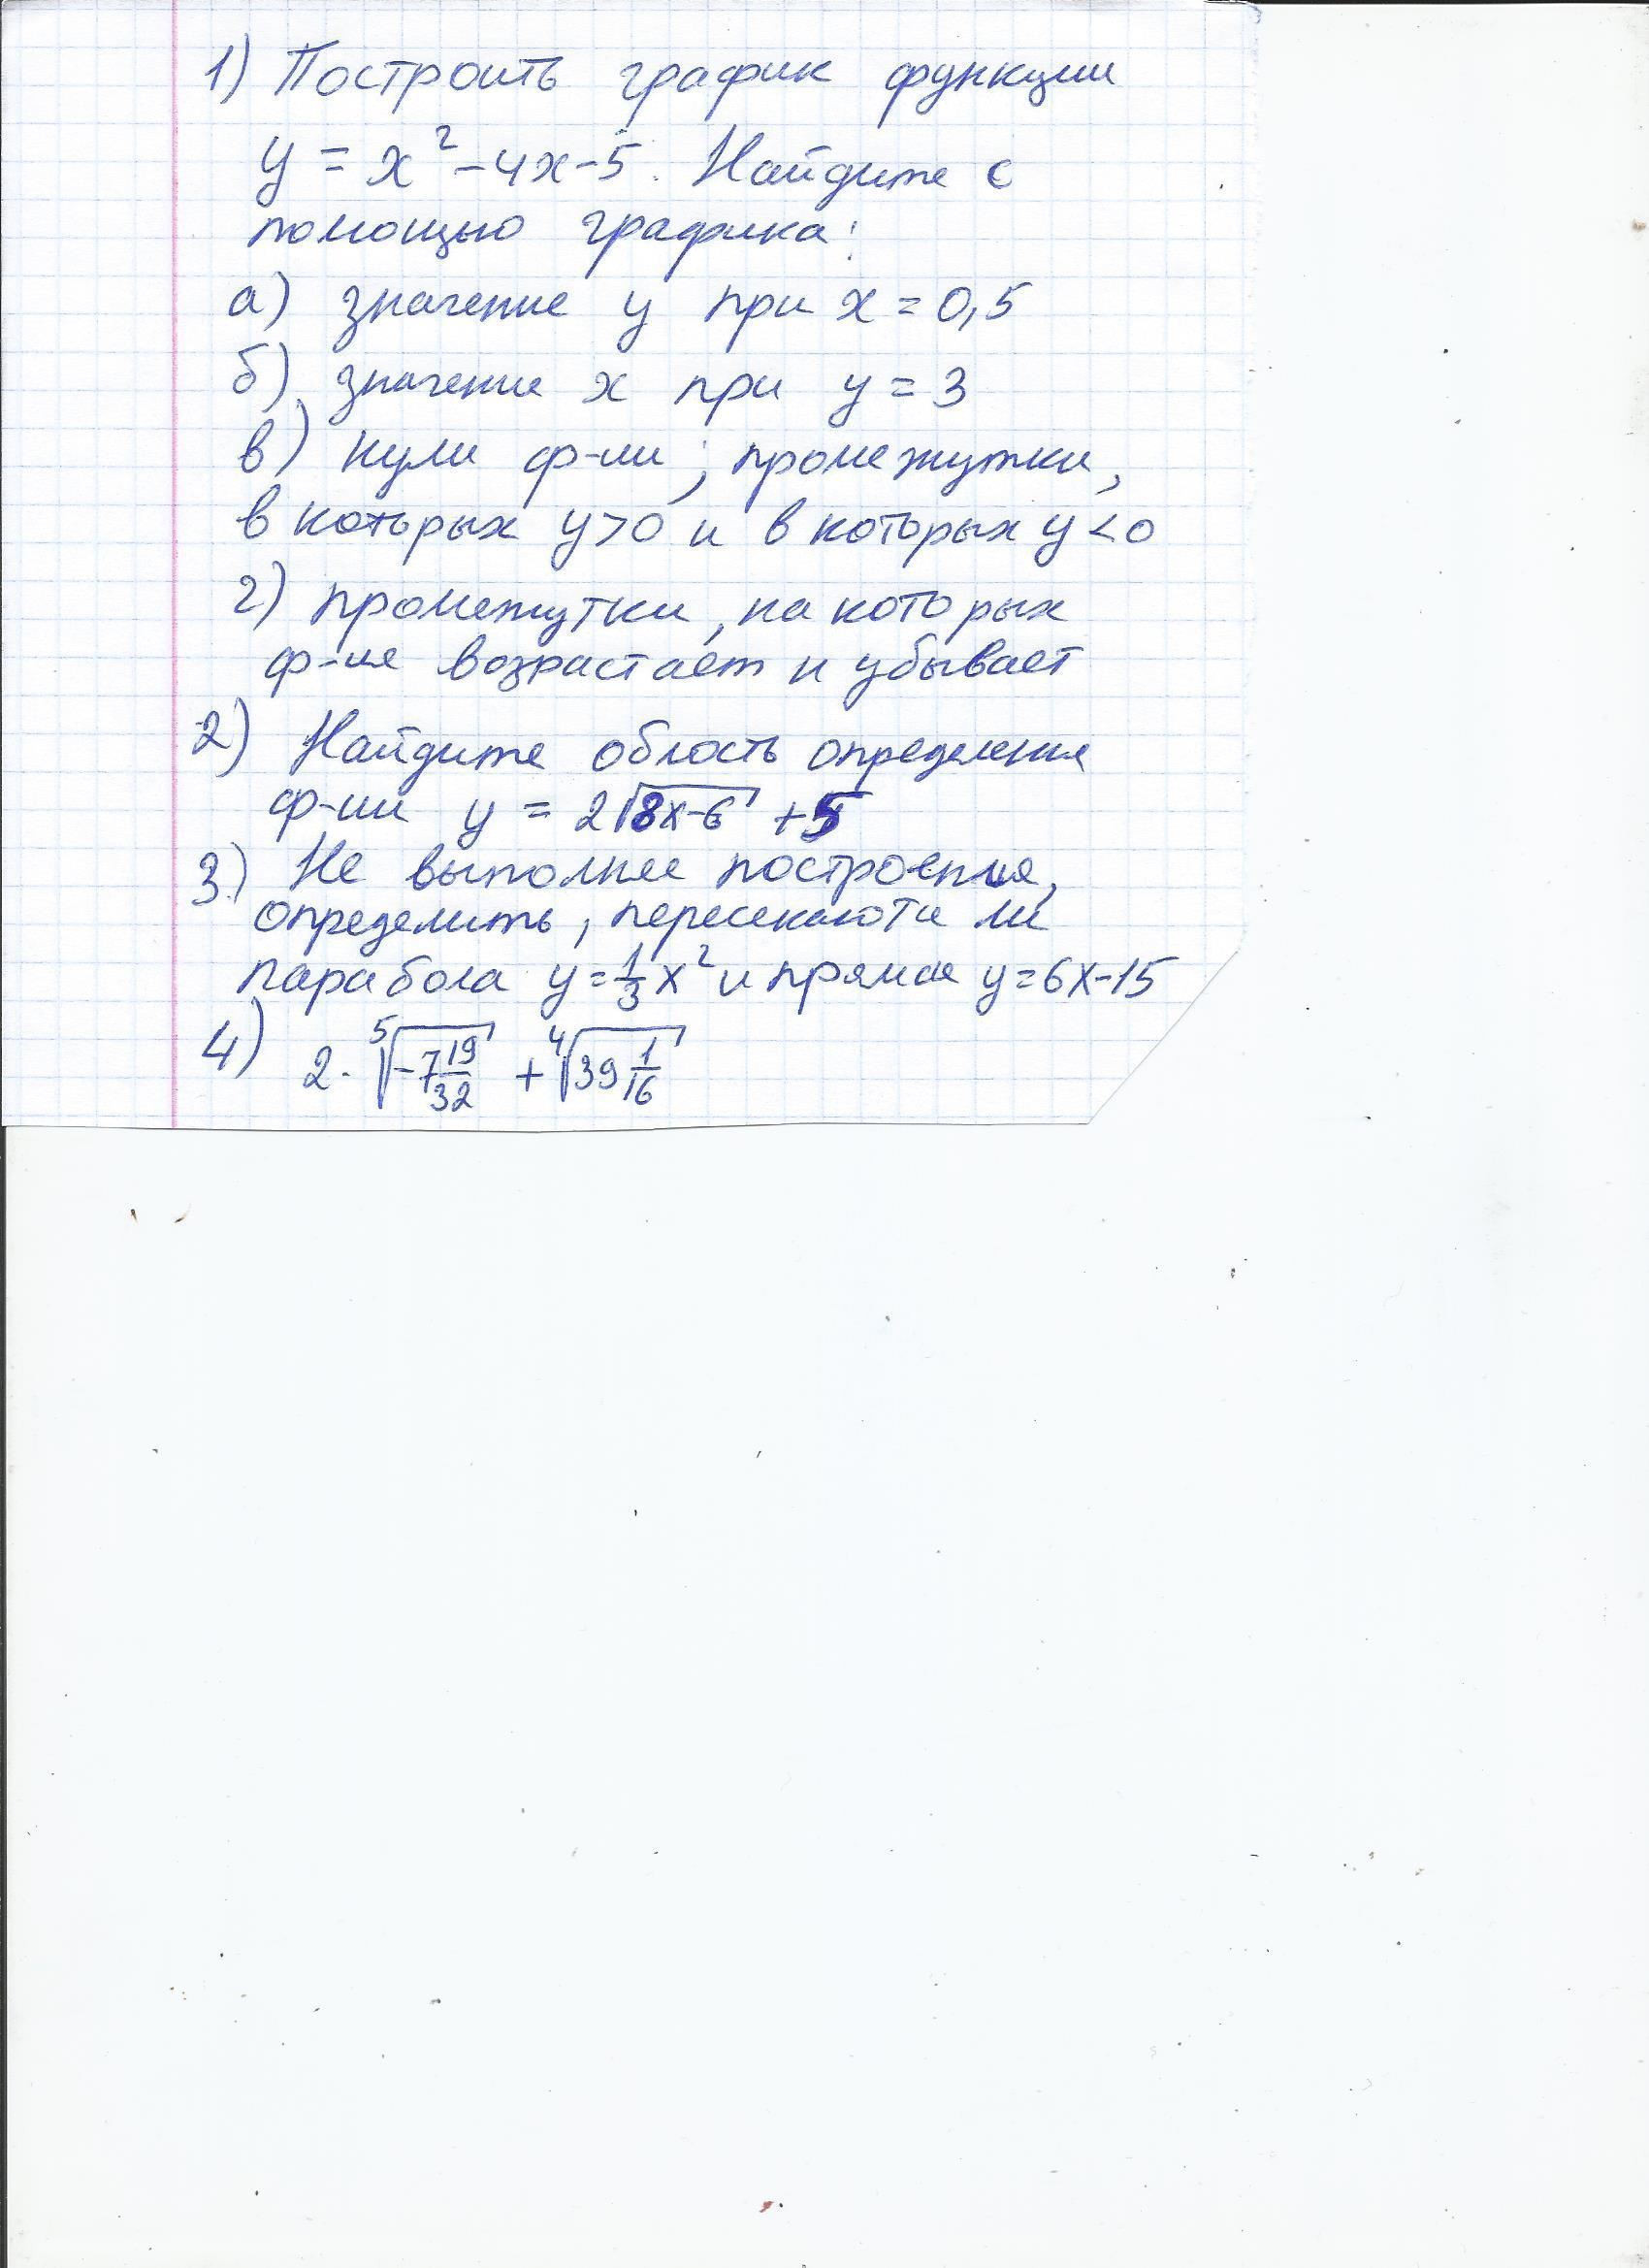 1) Построить график функции
y = x² - 4x - 5. Найдите с
помощью графика:
а) значение y при x = 0,5
б) значение x при y = 3
в) нули ф-ии; промежутки,
в которых y>0 и в которых y<0
г) промежутки, на которых
ф-ия возрастает и убывает
2) Найдите область определения
ф-ии y = 2√(8x-6) + 5
3) Не выполняя построения,
определить, пересекаются ли
парабола y = 1/3 x² и прямая y = 6x-15
4) 2 · ⁵√(-7 19/32) + ⁴√(39 1/16)